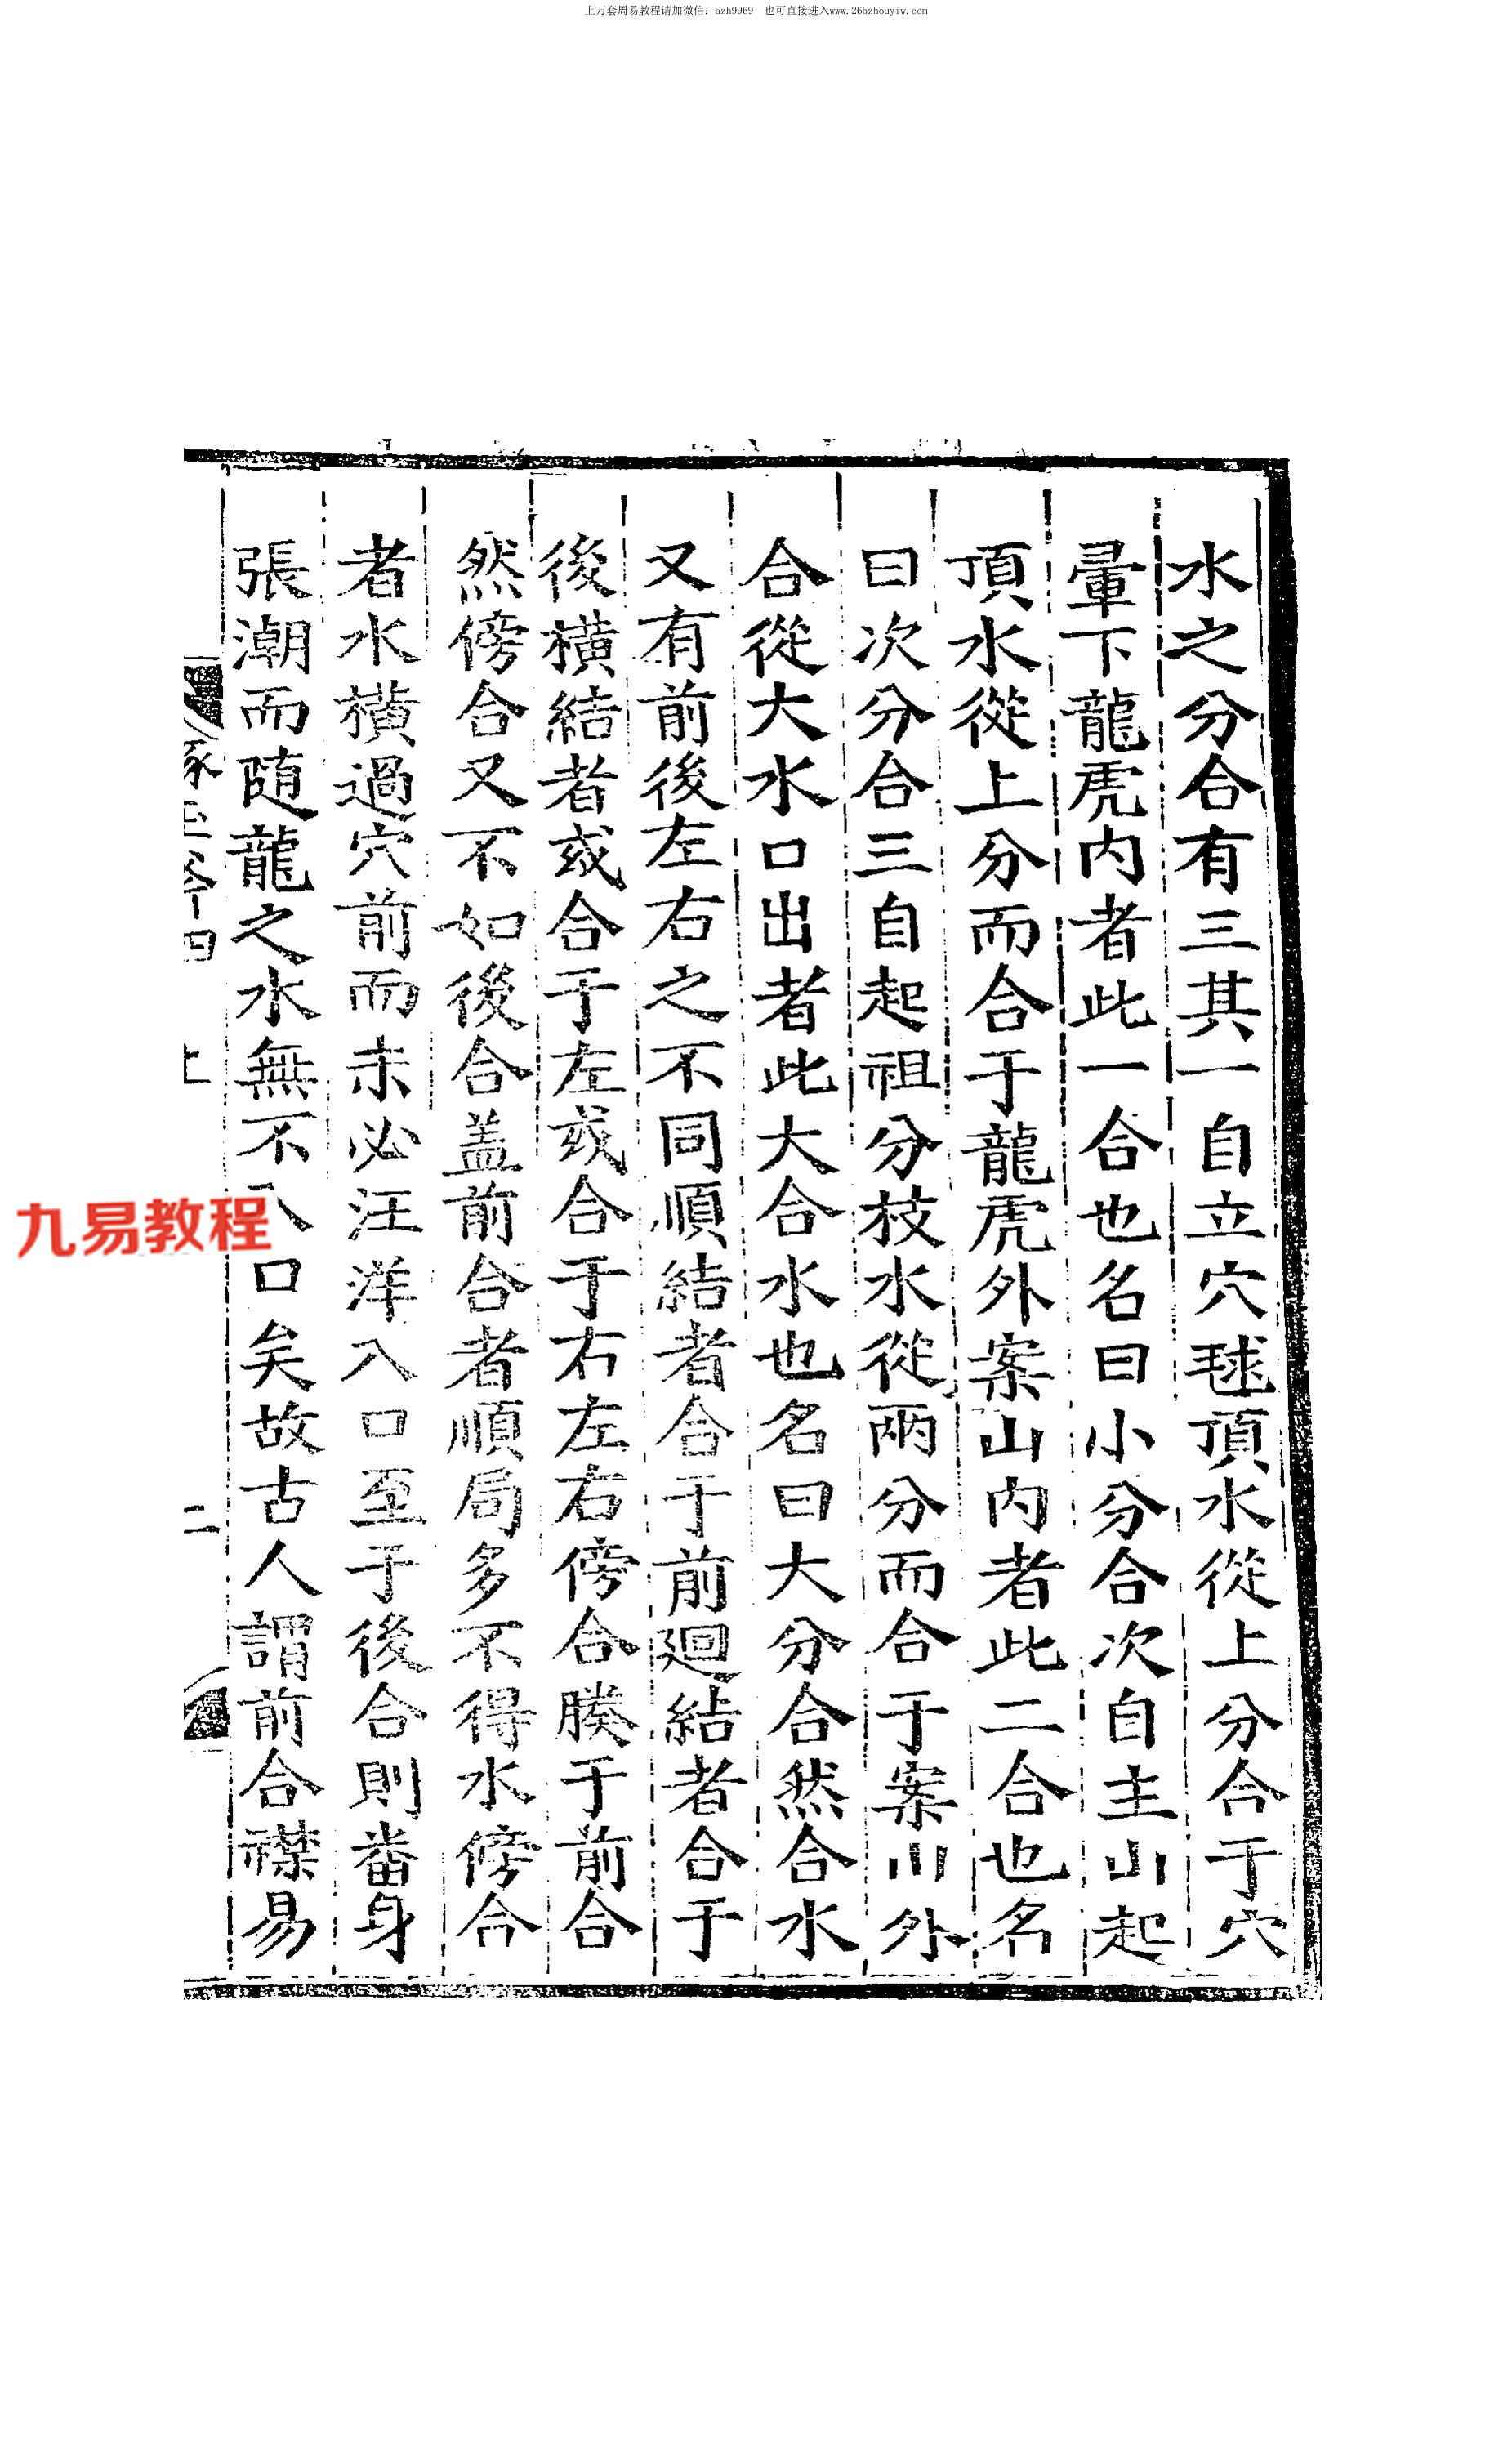 上万套周易教程请加微信：azh9969 也可直接进入www.265zhouyiw.com
水之分合有三其一自立穴毬頂水從上分合于穴
暈下龍虎内者此一合也名曰小分合次自主山起
頂水從上分而合于龍虎外案山内者此二合也名
曰次分合三自起祖分枝水從兩分而合于案川外
合從大水口出者此大合水也名曰大分合然合水
又有前後左右之不同順結者合于前廻結者合于
後横結者或合于左或合于右左右傍合勝于前合
然傍合又不如後合盖前合者順局多不得水傍合
者水横過穴前而未必汪洋入口至于後合則畨身
張潮而随龍之水無不入口矣故古人謂前合襟易
上
二
九易教程